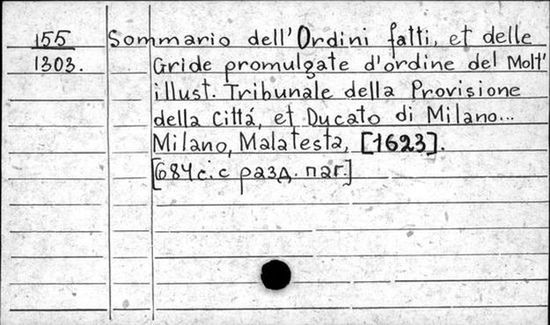 155 Sommario dell'Ordini fatti, et delle
1303. Gride promulgate d'ordine del Molt'
illust. Tribunale della Provisione
della Cittá, et Ducato di Milano...
Milano, Malatesta, [1623].
[684 с. с разд. паг.]